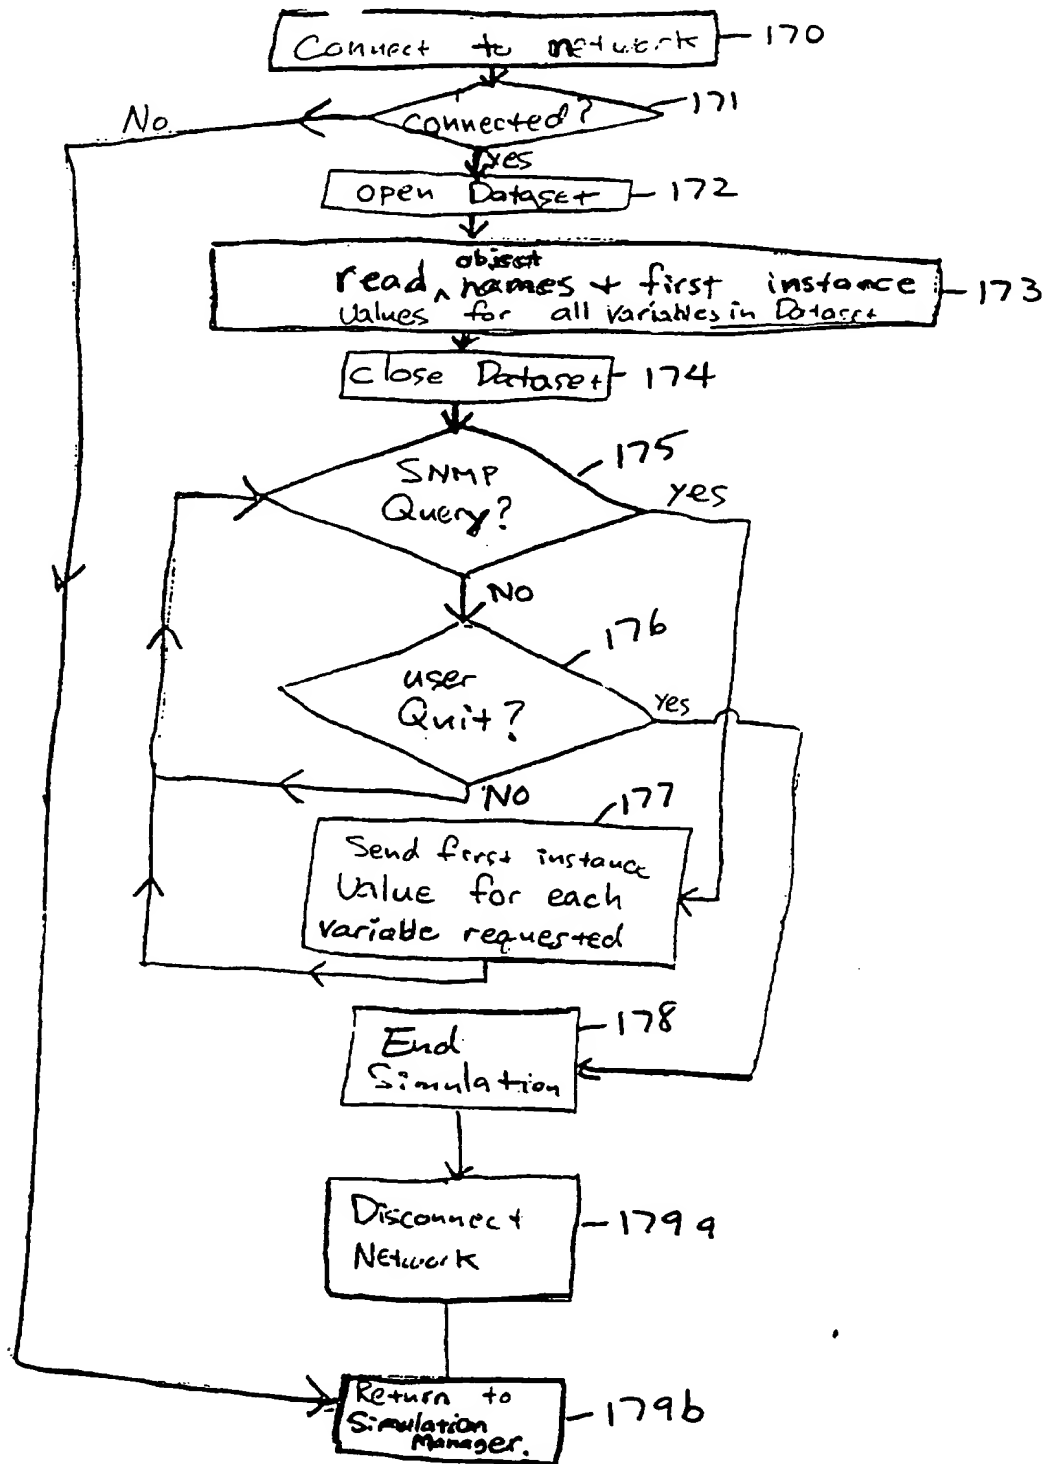 Connect to network
170
connected?
171
No
yes
open Dataset
172
object
read ^ names + first instance
values for all variables in Dataset
173
close Dataset
174
SNMP
Query?
175
yes
NO
user
Quit?
176
yes
NO
177
Send first instance
value for each
variable requested
End
Simulation
178
Disconnect
Network
179a
Return to
Simulation
Manager.
179b